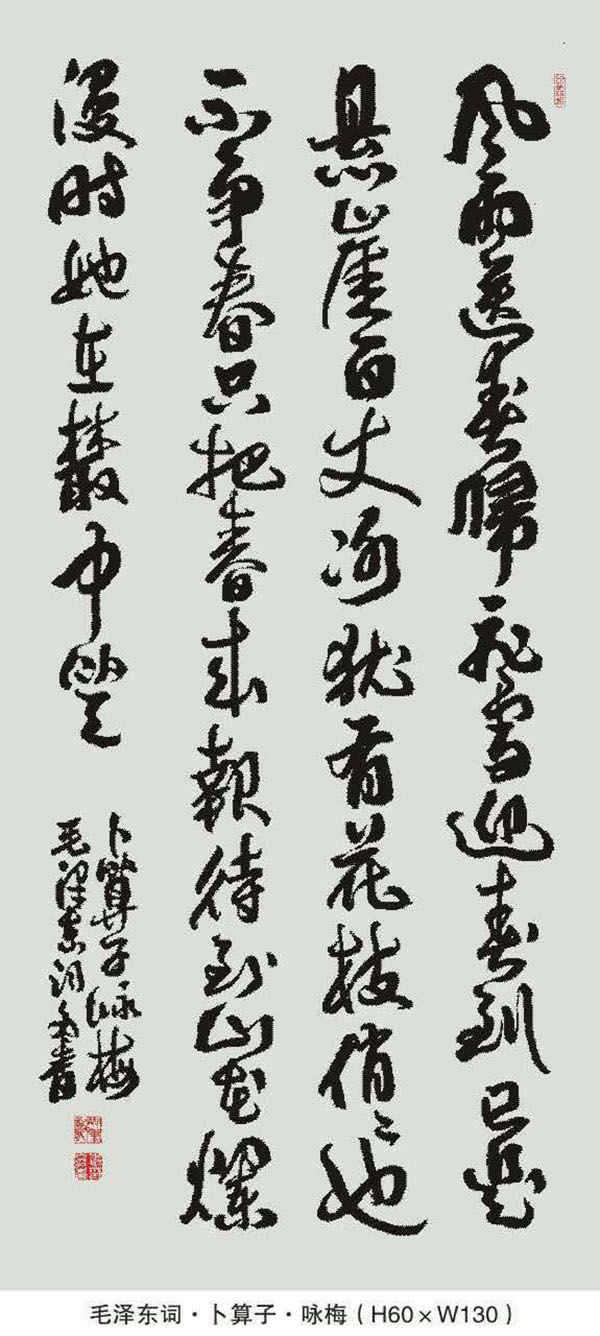 風雨送春歸飛雪迎春到已是
悬崖百丈冰犹有花枝俏〻也
不争春只把春来報待到山花爛
漫时她在叢中笑
卜算子咏梅
毛泽东词书
毛泽东词·卜算子·咏梅（H60×W130）